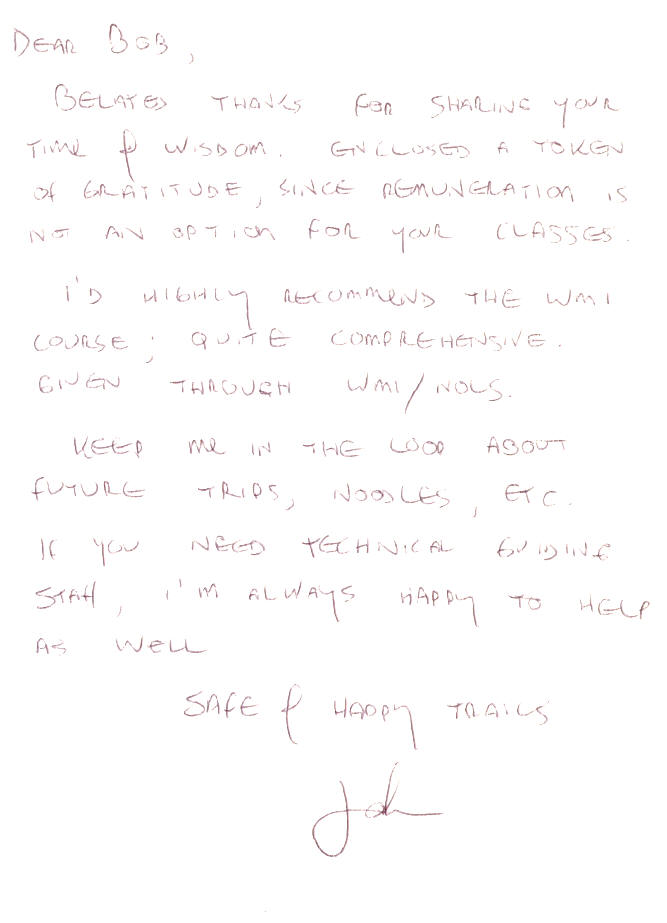 DEAR BOB,
BELATED THANKS FOR SHARING YOUR
TIME & WISDOM. ENCLOSED A TOKEN
OF GRATITUDE, SINCE REMUNERATION IS
NOT AN OPTION FOR YOUR CLASSES.
I'D HIGHLY RECOMMEND THE WMI
COURSE; QUITE COMPREHENSIVE.
GIVEN THROUGH WMI/NOLS.
KEEP ME IN THE LOOP ABOUT
FUTURE TRIPS, NOODLES, ETC.
IF YOU NEED TECHNICAL GUIDING
STAFF, I'M ALWAYS HAPPY TO HELP
AS WELL
SAFE & HAPPY TRAILS
John